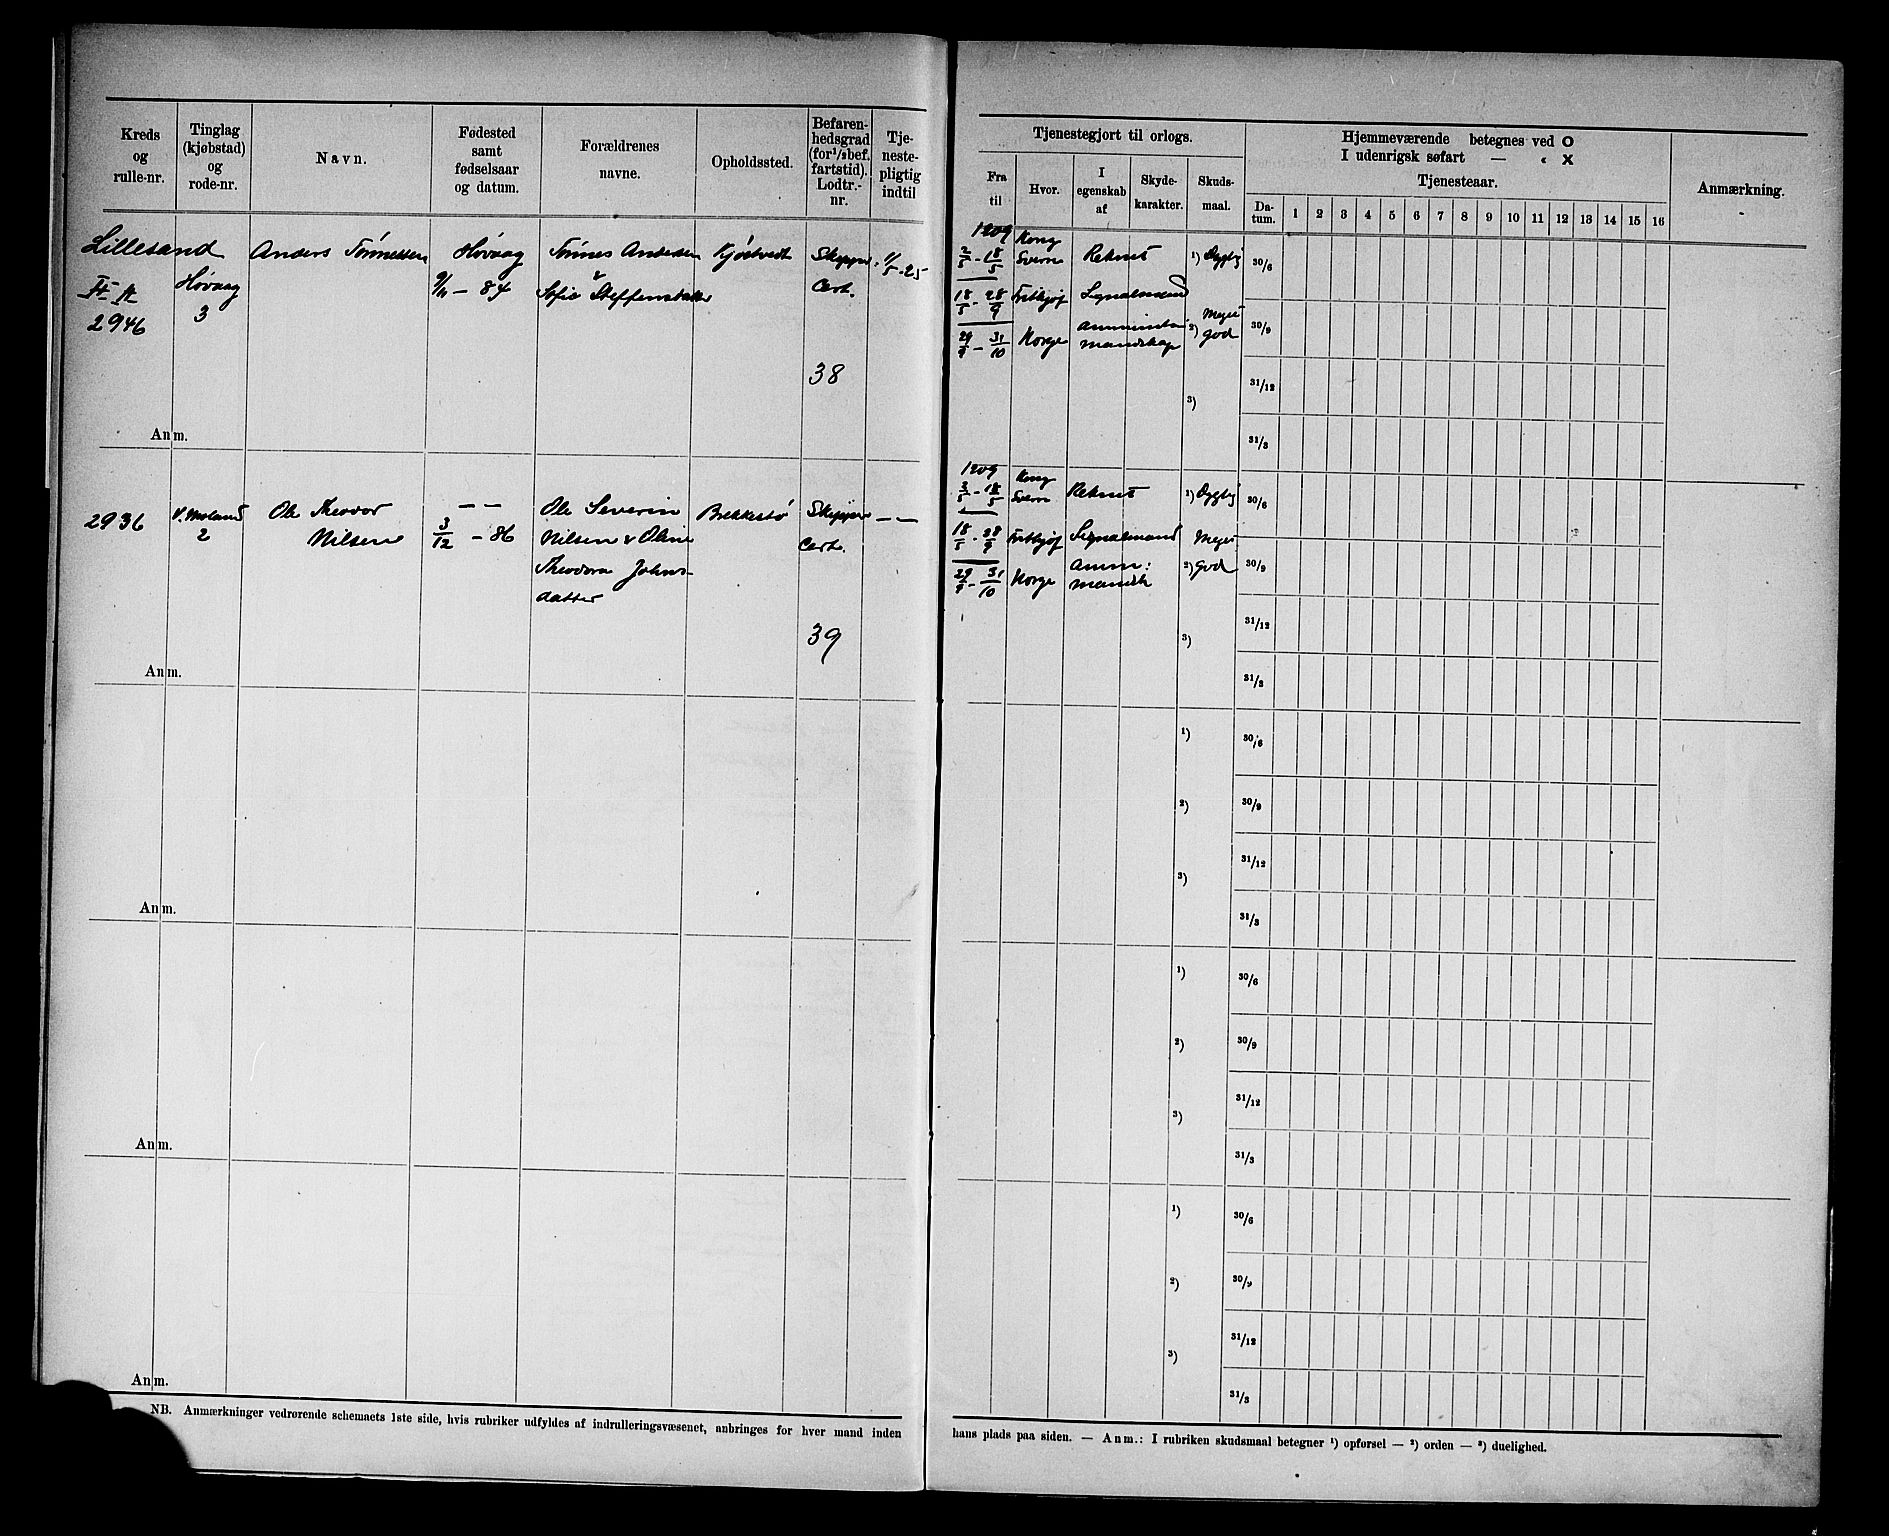 Kreds og rulle-nr.
Tinglag (kjøbstad) og rode-nr.
Navn.
Fødested samt fødselsaar og datum.
Forældrenes navne.
Opholdssted.
Befaren-hedsgrad (for ½ bef. fartstid). Lodtr.-nr.
Tje-neste-pligtig indtil
Tjenestegjort til orlogs.
Fra til
Hvor.
I egenskab af
Skyde-karakter.
Skuds-maal.
Hjemmeværende betegnes ved O
I udenrigsk søfart — " X
Tjenesteaar.
Da-tum. 1 2 3 4 5 6 7 8 9 10 11 12 13 14 15 16
Anmærkning.
Lillesand
2946
Høvaag
3
Anders Tønnessen
Høvaag
9/11 - 84
Tønnes Andersen
&
Sofie Steffensdatter
Kjøstvedt
Skipper
Cert.
38
1/5-25
1909
2/5 - 18/5 Kong Sverre Rekrut 1) Dygtig
18/5 - 28/9 Fritkjof Signalmand
29/9 - 31/10 Norge mandskap 2) Meget god
3)
30/6
30/9
31/12
31/3
Anm.
2936
V. Moland
2
Ole Theodor
Nilsen
— —
3/12 - 86
Ole Severin
Nilsen & Oline
Theodora Johns-
datter
Brekkestø
Skipper
Cert.
39
— —
1909
3/5 - 18/5 Kong Sverre Rekrut 1) Dygtig
18/5 - 28/9 Fritkjof Signalmand
29/9 - 31/10 Norge Amm: mandsk 2) Meget god
3)
30/6
30/9
31/12
31/3
Anm.
1)
2)
3)
30/6
30/9
31/12
31/3
Anm.
1)
2)
3)
30/6
30/9
31/12
31/3
Anm.
1)
2)
3)
30/6
30/9
31/12
31/3
Anm.
NB. Anmærkninger vedrørende schemaets 1ste side, hvis rubriker udfyldes af indrulleringsvæsenet, anbringes for hver mand inden
hans plads paa siden. — Anm.: I rubriken skudsmaal betegner ¹) opførsel — ²) orden — ³) duelighed.